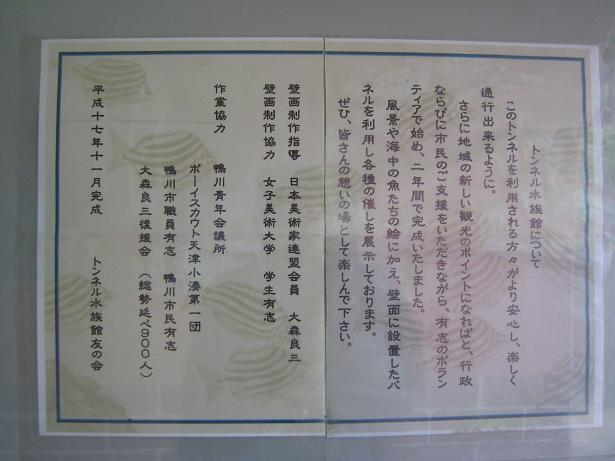 トンネル水族館について
このトンネルを利用される方々がより安心し、楽しく
通行出来るように。
さらに地域の新しい観光のポイントになればと、行政
ならびに市民のご支援をいただきながら、有志のボラン
ティアで始め、二年間で完成いたしました。
風景や海中の魚たちの絵に加え、壁面に設置したパ
ネルを利用し各種の催しを展示しております。
ぜひ、皆さんの憩いの場として楽しんで下さい。
壁画制作指導 日本美術家連盟会員 大森良三
壁画制作協力 女子美術大学 学生有志
作業協力 鴨川青年会議所
ボーイスカウト天津小湊第一団
鴨川市職員有志 鴨川市民有志
大森良三後援会 (総勢延べ900人)
平成十七年十一月完成 トンネル水族館友の会